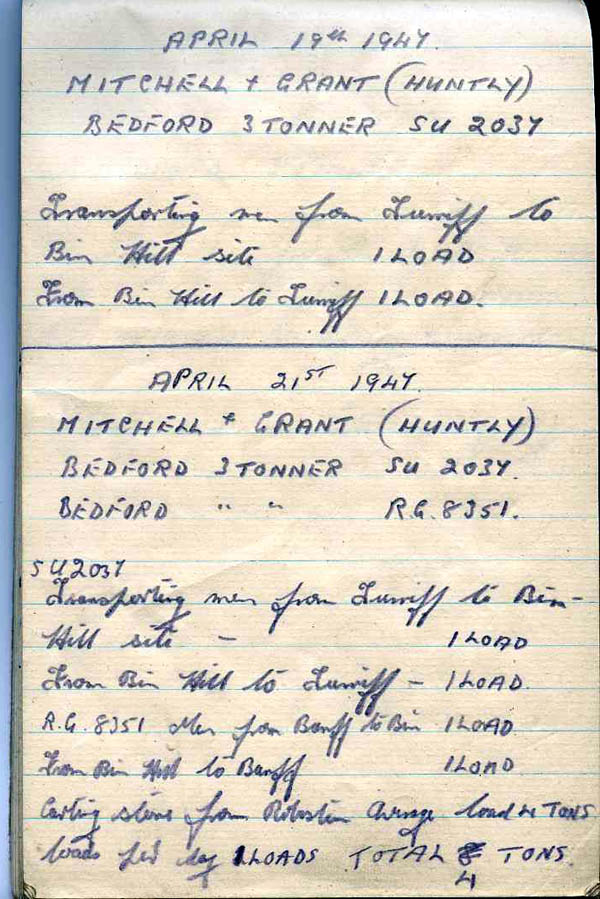 APRIL 19th 1947.
MITCHELL + GRANT (HUNTLY)
BEDFORD 3 TONNER SU 2037
Transporting men from Turriff to
Bin Hill site 1 LOAD
From Bin Hill to Turriff 1 LOAD.
APRIL 21ST 1947.
MITCHELL + GRANT (HUNTLY)
BEDFORD 3 TONNER SU 2037.
BEDFORD " " R.G. 8351.
SU 2037
Transporting men from Turriff to Bin-
Hill site - 1 LOAD
From Bin Hill to Turriff - 1 LOAD.
R.G. 8351 Men from Banff to Bin 1 LOAD
From Bin Hill to Banff 1 LOAD
Carting stone from Average load 4 TONS
loads per day 1 LOADS TOTAL TONS.
4